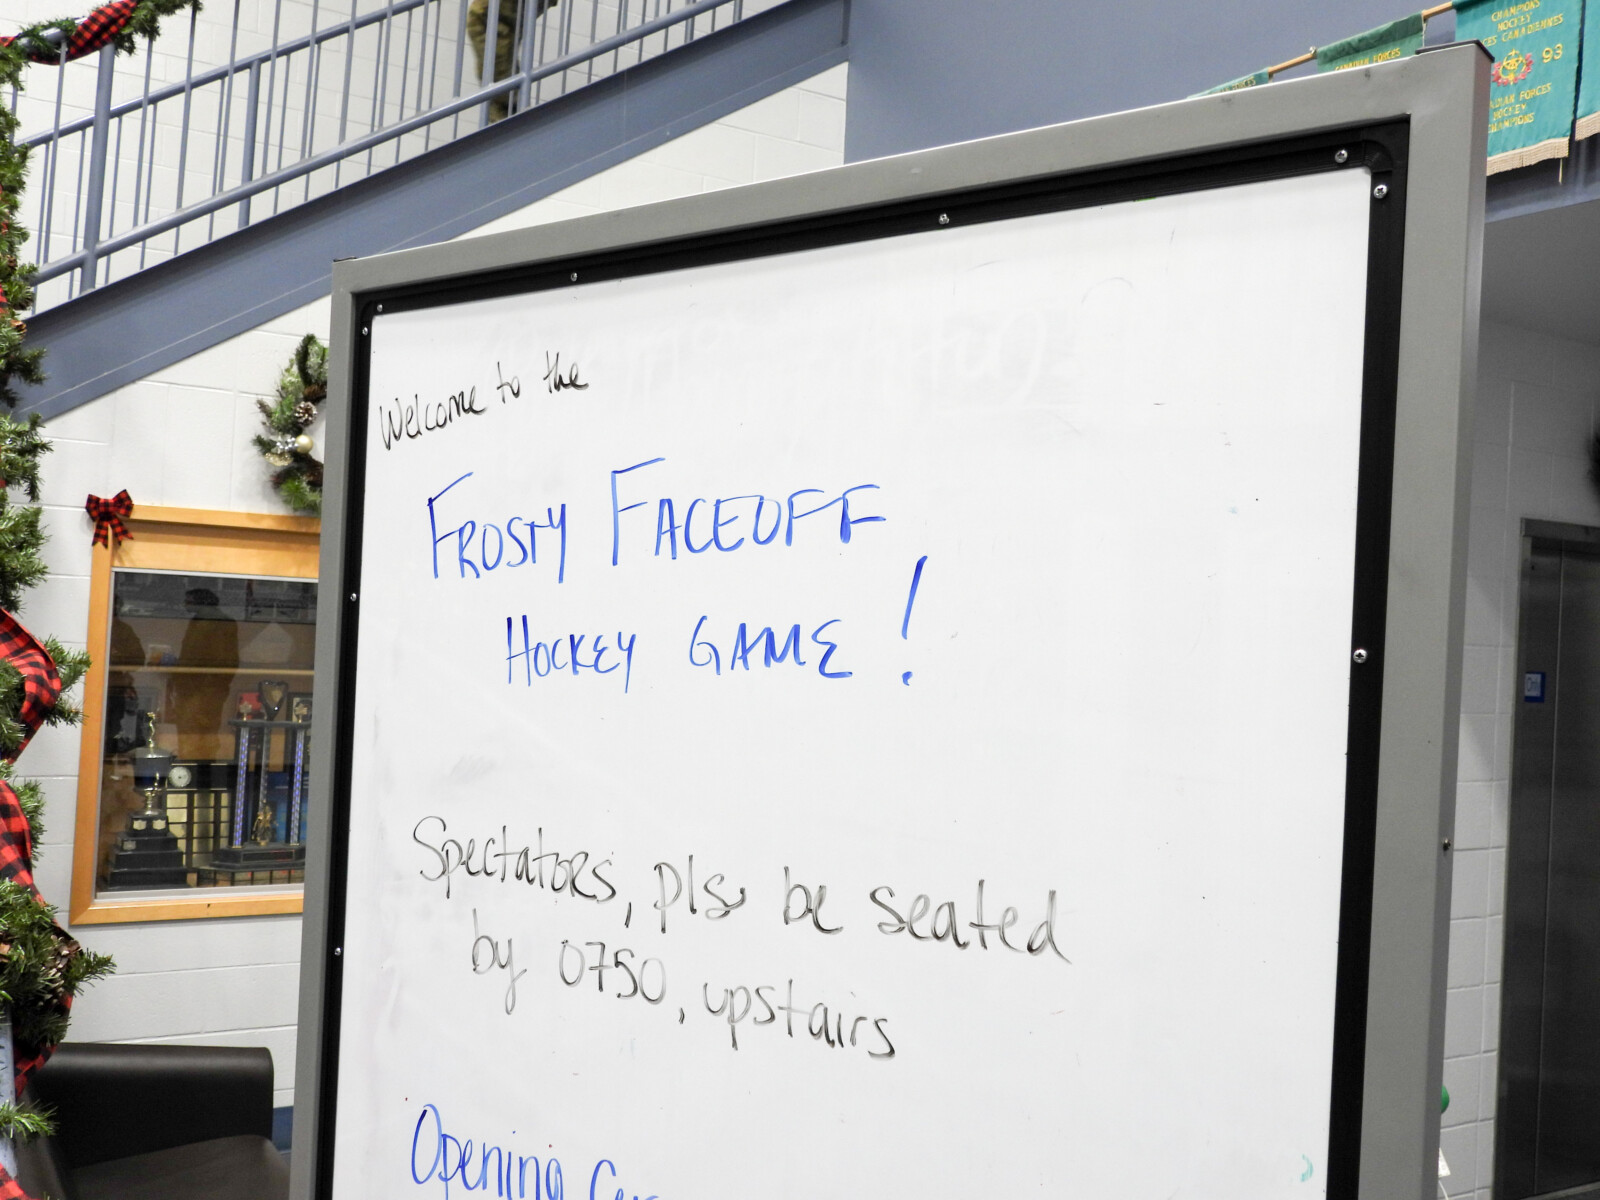 Welcome to the
FROSTY FACEOFF
HOCKEY GAME!
Spectators, pls be seated
by 0750, upstairs
Opening
CHAMPIONS
HOCKEY
CES CANADIENNES
93
DIAN FORCES
HOCKEY
CHAMPIONS
CANADIAN FORCES